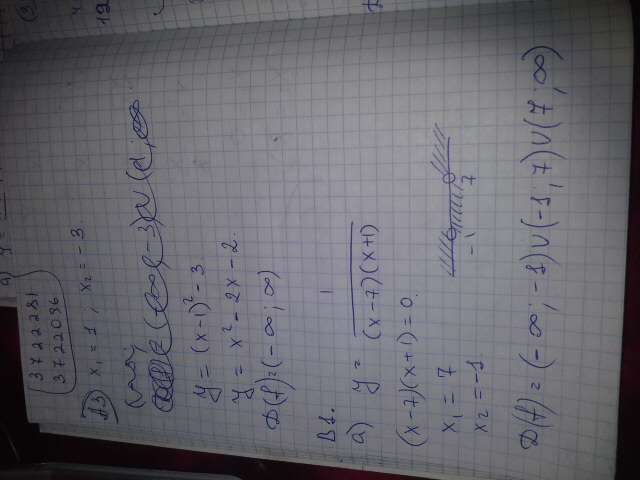 3722281
3722096
x₁ = 1 ; x₂ = - 3
y = (x-1)² - 3
y = x² - 2x - 2.
D(f) = (- ∞ ; ∞)
В1.
а) y = 1 / (x-7)(x+1)
(x-7)(x+1) = 0.
x₁ = 7
x₂ = -1
-1 7
D(f) = (- ∞ ; -1) ∪ (-1 ; 7) ∪ (7 ; ∞)